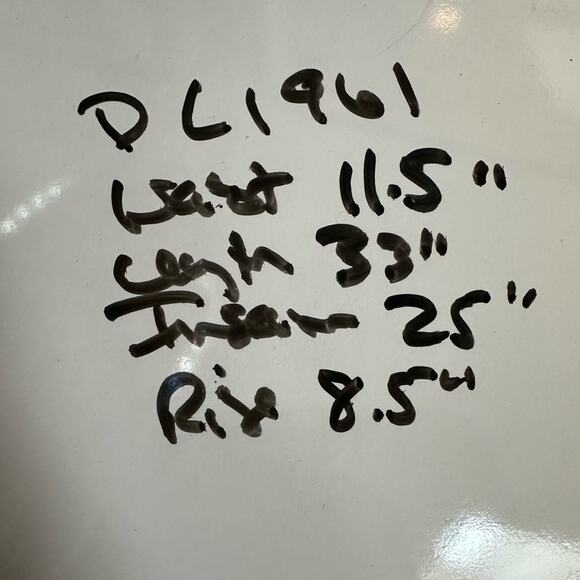 DL1961
Waist 11.5"
Length 33"
Inseam 25"
Rise 8.5"